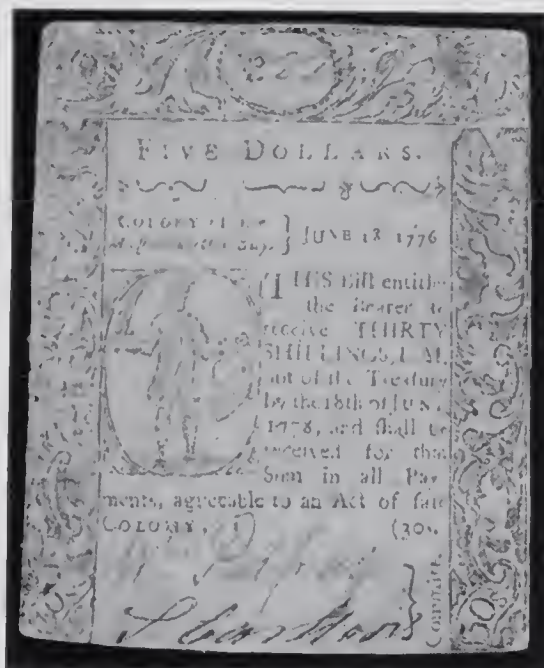 FIVE DOLLARS.
COLONY
JUNE 18 1776
THIS Bill entitles
the Bearer to
receive THIRTY
SHILLINGS, L.M.
out of the Treasury
by the 18th of JUNE,
1778, and shall be
received for that
Sum in all Pay-
ments, agreeable to an Act of said
COLONY. (30s.
Committee.